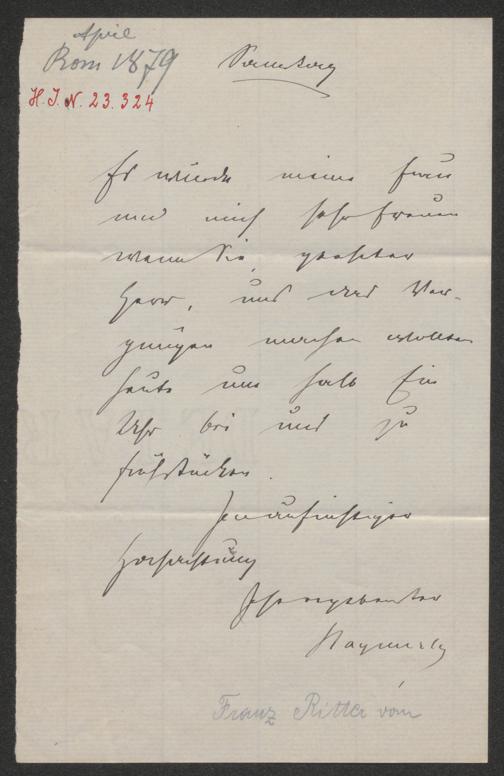 April
Rom 1879
Sonntag
H. I. N. 23.324
Es würde meine Frau
und mich sehr freuen
wenn Sie, geehrter
Herr, uns das Ver-
gnügen machen wollten
heute um halb Ein
Uhr bei uns zu
frühstücken.
In aufrichtiger
Hochachtung
Ihr ergebenster
Haymerle
Franz Ritter von